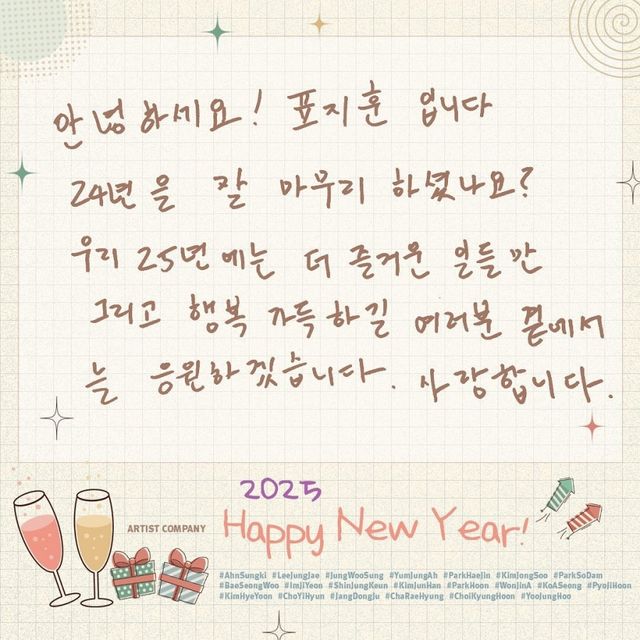 안녕하세요! 표지훈 입니다
24년을 잘 마무리 하셨나요?
우리 25년에는 더 즐거운 일들만
그리고 행복 가득하길 여러분 곁에서
늘 응원하겠습니다. 사랑합니다.
2025
Happy New Year!
ARTIST COMPANY
#AhnSungki #LeeJungJae #JungWooSung #YumJungAh #ParkHaeJin #KimJongSoo #ParkSoDam
#BaeSeongWoo #ImJiYeon #ShinJungKeun #KimJunHan #ParkHoon #WonJinA #KoASeong #PyoJiHoon
#KimHyeYoon #ChoYiHyun #JangDongJu #ChaRaeHyung #ChoiKyungHoon #YooJungHoo